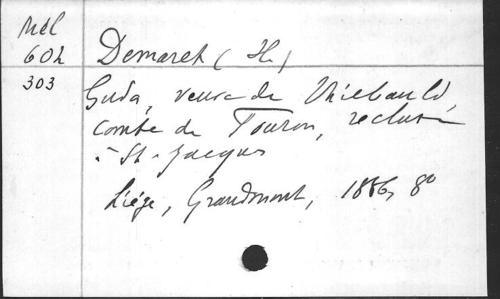 Mél
604
303
Demaret (H.)
Guda, veuve de Thiébauld,
comte de Fouron, recluse
à St-Jacques
Liége, Grandmont, 1886, 8°